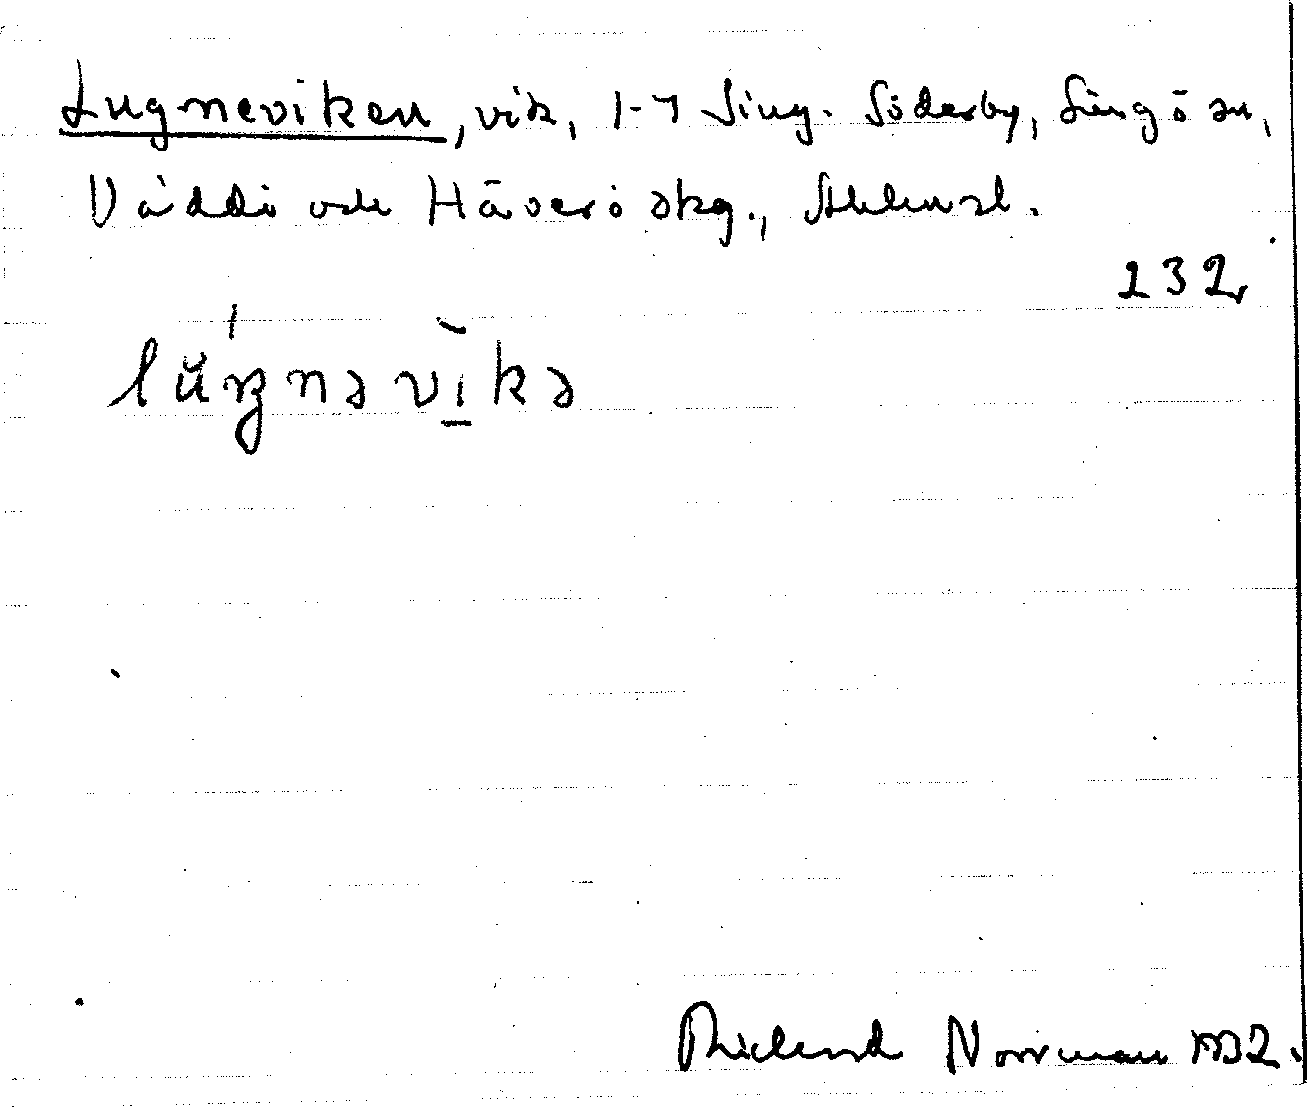 Lugneviken, vik, 1-7 Sing. Söderby, Singö sn,
Väddö och Häverö skg., Sthlms l.
232
lúŋnəvi̱kə
Rickard Norrman 1932.